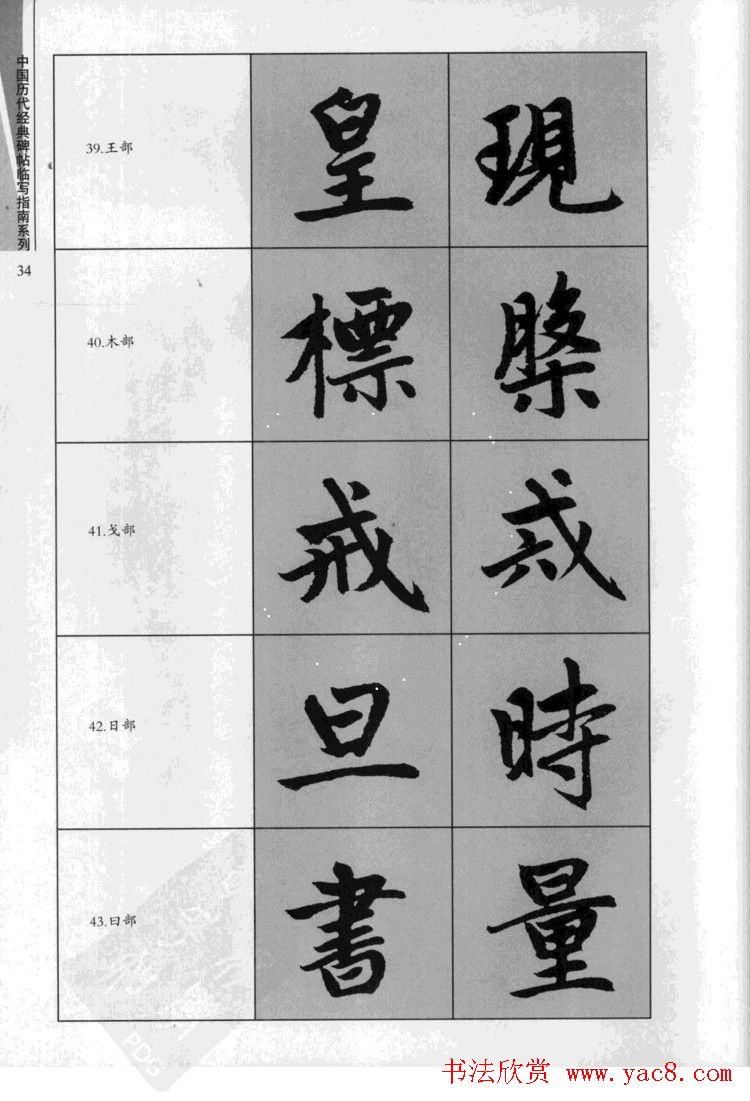 中国历代经典碑帖临写指南系列
34
39.王部 皇 現
40.木部 標
41.戈部 戒
42.日部 旦 時
43.曰部 書 量
PDG
书法欣赏 www.yac8.com